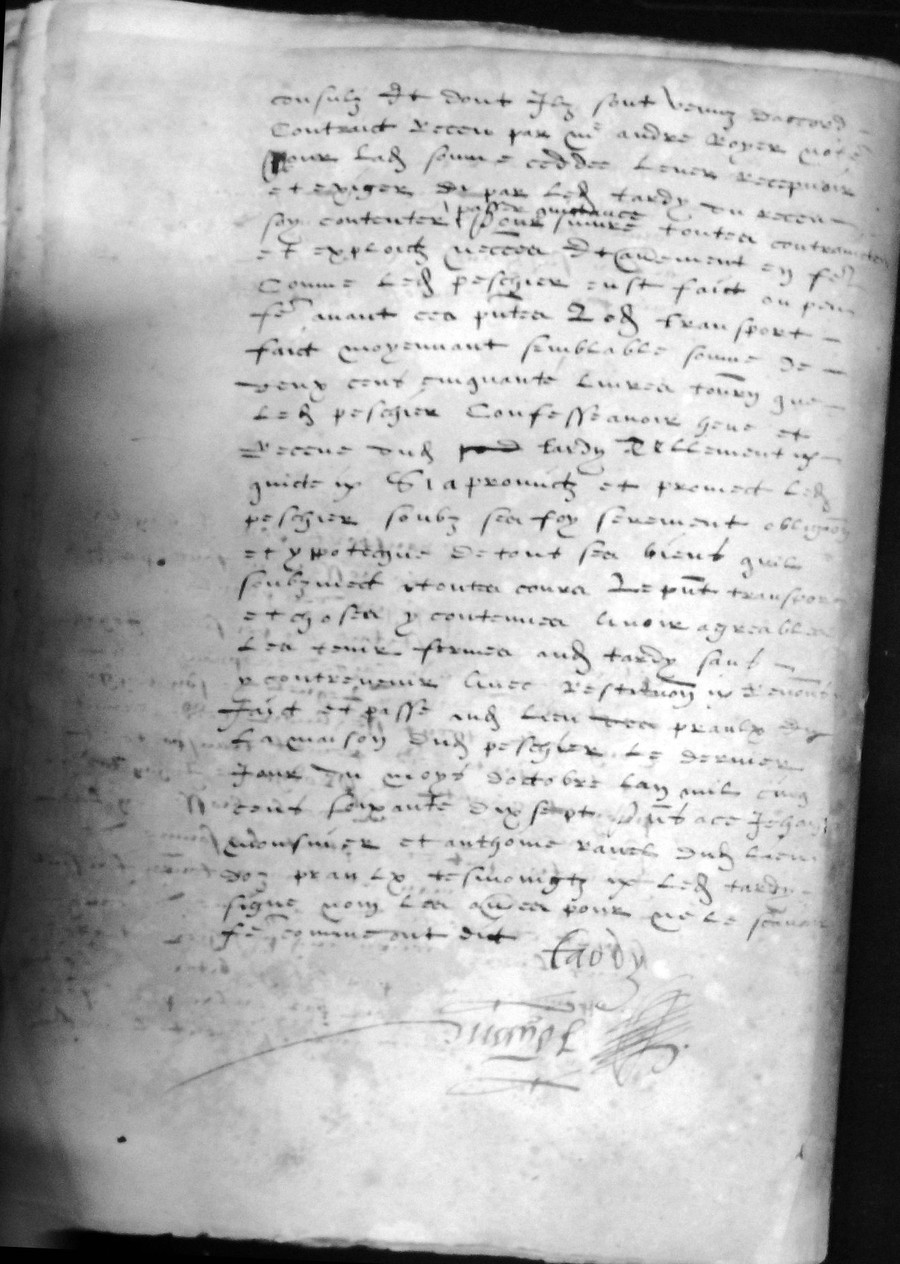 consulz et dont Ilz sont venuz daccord
Contract Receu par me andre Royer note
pour lad somme ceddee lever Recepvoir
et exiger et par led tardy du receu
soy contenter passer quictance
pour suivre toutes contrainctes
et exploictz necess et aultrement en fe
Comme led peschier eust faict ou peu
fe avant ces pntes Led transport
faict moyennant semblable somme de
deux cens cinquante livres tourn que
led peschier Confesse avoir heue et
Receue dud tardy Rellement &c
quicte &c Si a promictz et promect led
peschier soubz ses foy serement obligaon
et ypotecque de tout ses biens quil
soubzmect a toutes cours Le pnt transport
et choses y contenues avoir agreables
les tenir fermes aud tardy sans
y contrevenir avec Restituon &c Renon
faict et passe aud lieu des praulx
la maison dud peschier le dernier
Jour du moys doctobre lan mil cinq
cens soixante dix sept pns ace Jehan
monsinier et anthoine ravel dud lieu
des praulx tesmoingtz &c Led tardy
signe non les aultres pour ne le scavoir
fe comme ont dict
tardy